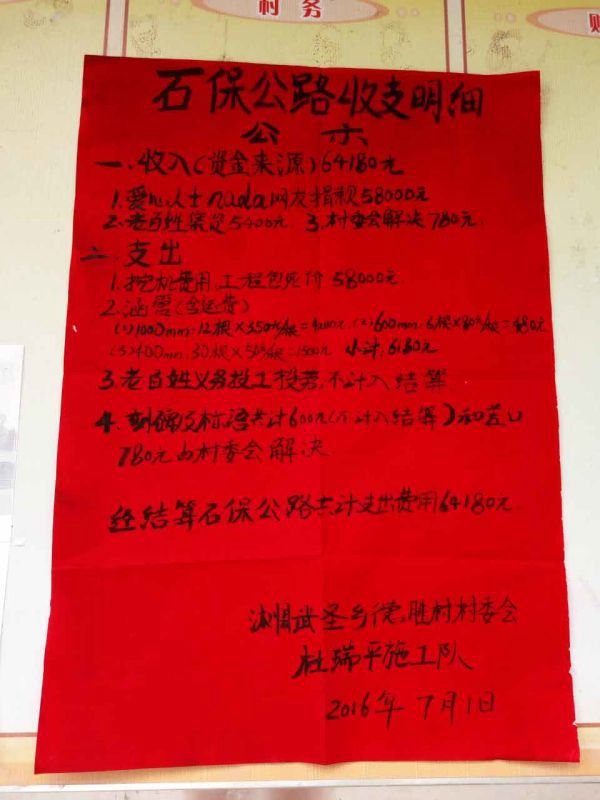 村务
石保公路收支明细
公示
一.收入(资金来源)64180元
1.爱心人士nada网友捐款58000元
2.老百姓集资5400元 3.村委会解决780元
二.支出
1.挖机费用,工程包死价58000元
2.涵管(含运费)
(1)1000mm:12根×350元/根=4200元.(2)600mm:6根×80元/根=480元
(3)400mm.30根×50元/根=1500元 小计:6180元
3.老百姓义务投工投劳,不计入结算
4.刻碑及村活共计600元(不计入结算)和差口
780元由村委会解决
经结算石保公路共计支出费用64180元.
武圣乡德胜村村委会
杜瑞平施工队
2016年7月1日